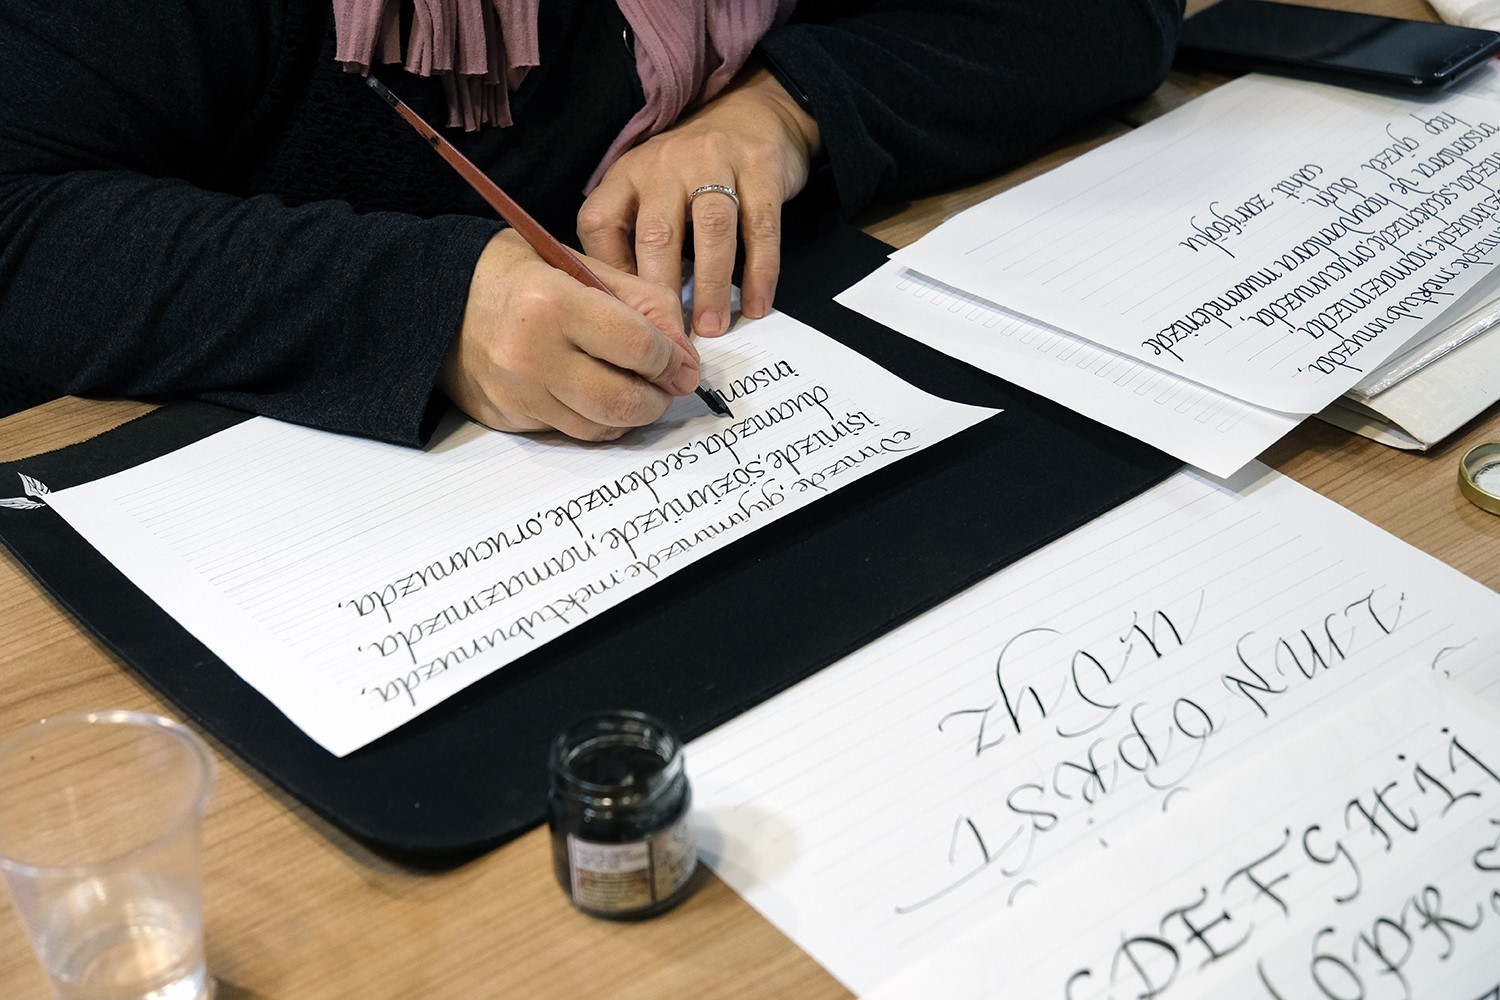 Evinizde, giyiminizde, mektubunuzda,
işinizde, sözünüzde, namazınızda,
duanızda, secdenizde, orucunuzda,
insan
mektubunuzda,
namazınızda,
secdenizde, orucunuzda,
insanlara ve hayvanlara muamelenizde
hep güzel olun.
cahit zarifoğlu
L M N
O P R S T
U V Y Z
C D E F G H I J
O P R S